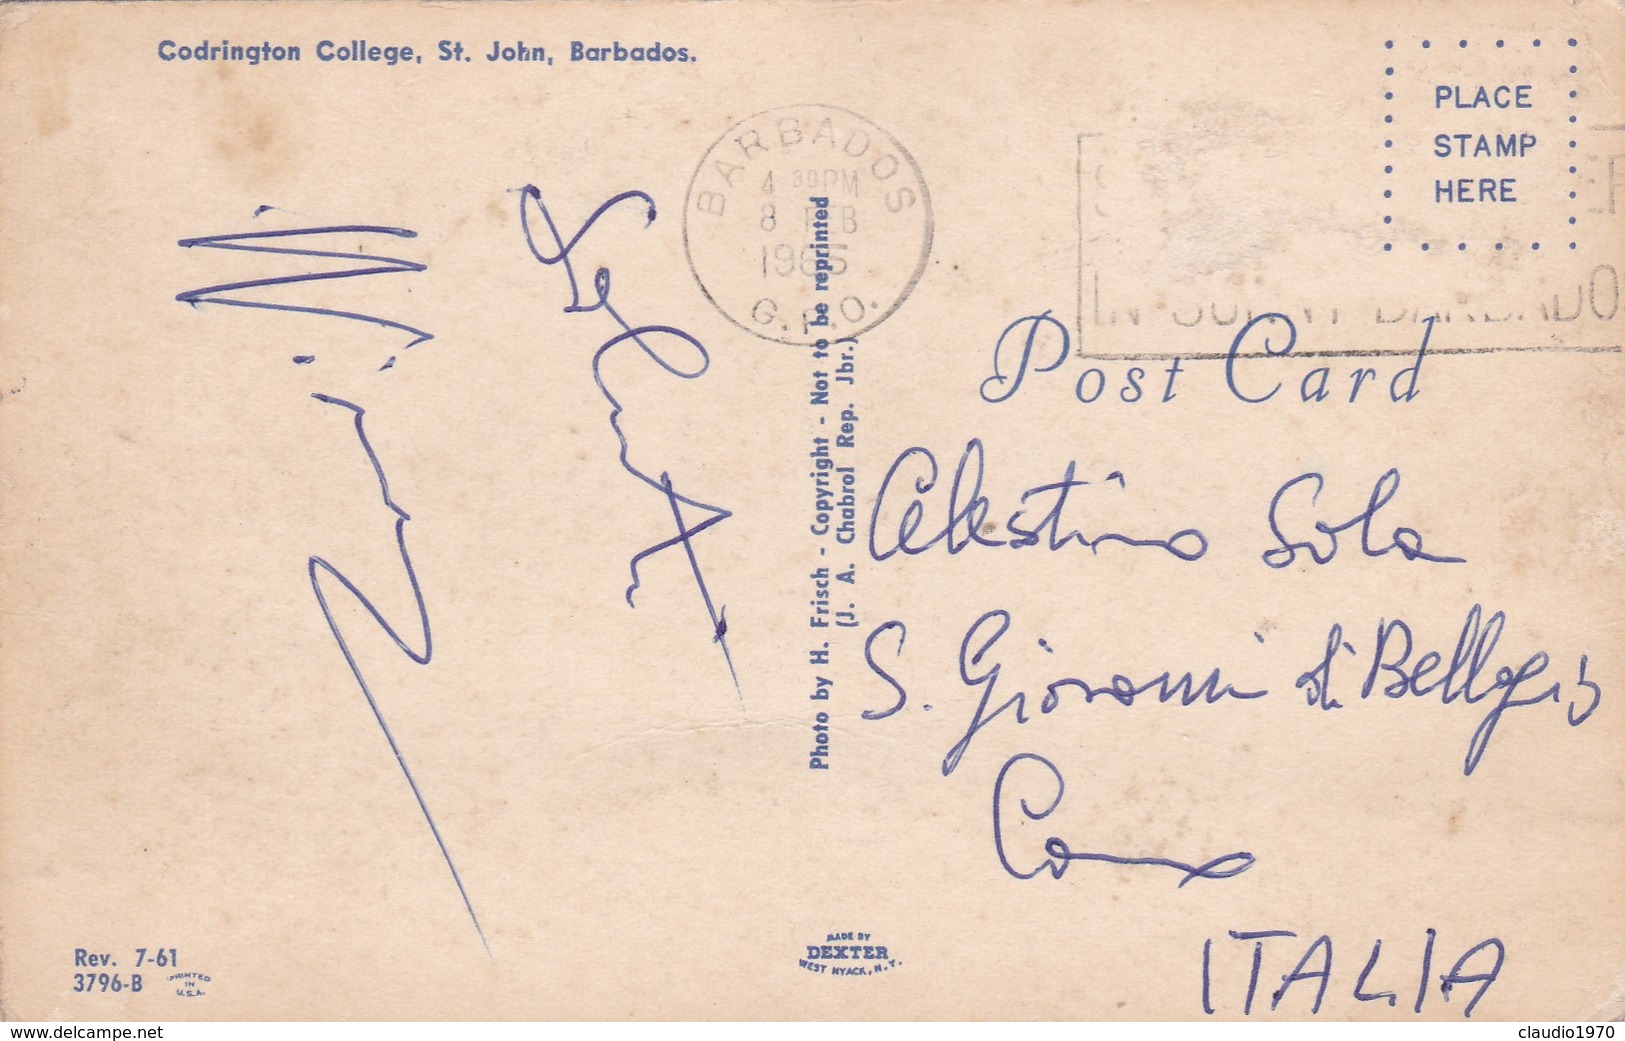 Codrington College, St. John, Barbados.
PLACE
STAMP
HERE
BARBADOS
4 30 PM
8 FEB
1966
G.P.O.
IN SUNNY BARBADOS
Post Card
Photo by H. Frisch - Copyright - Not to be reprinted
(J. A. Chabrol Rep. Jbr.)
Celestino Sola
S. Giovanni di Bellagio
Como
ITALIA
Rev. 7-61
3796-B
PRINTED
IN
U.S.A.
MADE BY
DEXTER
WEST NYACK, N.Y.
www.delcampe.net
claudio1970